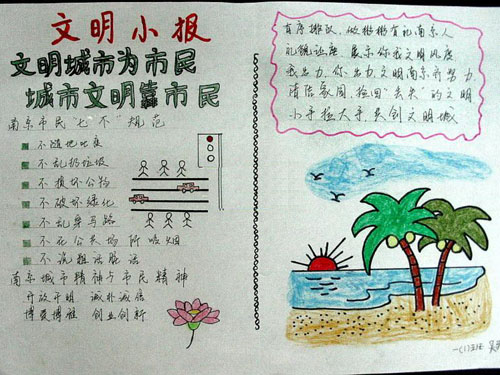 文明小报
文明城市为市民
城市文明靠市民
南京市民"七不"规范
不随地吐痰
不乱扔垃圾
不损坏公物
不破坏绿化
不乱穿马路
不在公共场所吸烟
不说粗话脏话
南京城市精神与市民精神
开放开明 诚朴诚信
博爱博雅 创业创新
有序排队,做彬彬有礼南京人
礼貌让座 展示你我文明风度
我出力,你出力,文明南京齐努力
清洁家园 捡回"丢失"的文明
小手拉大手共创文明城
一(1)班